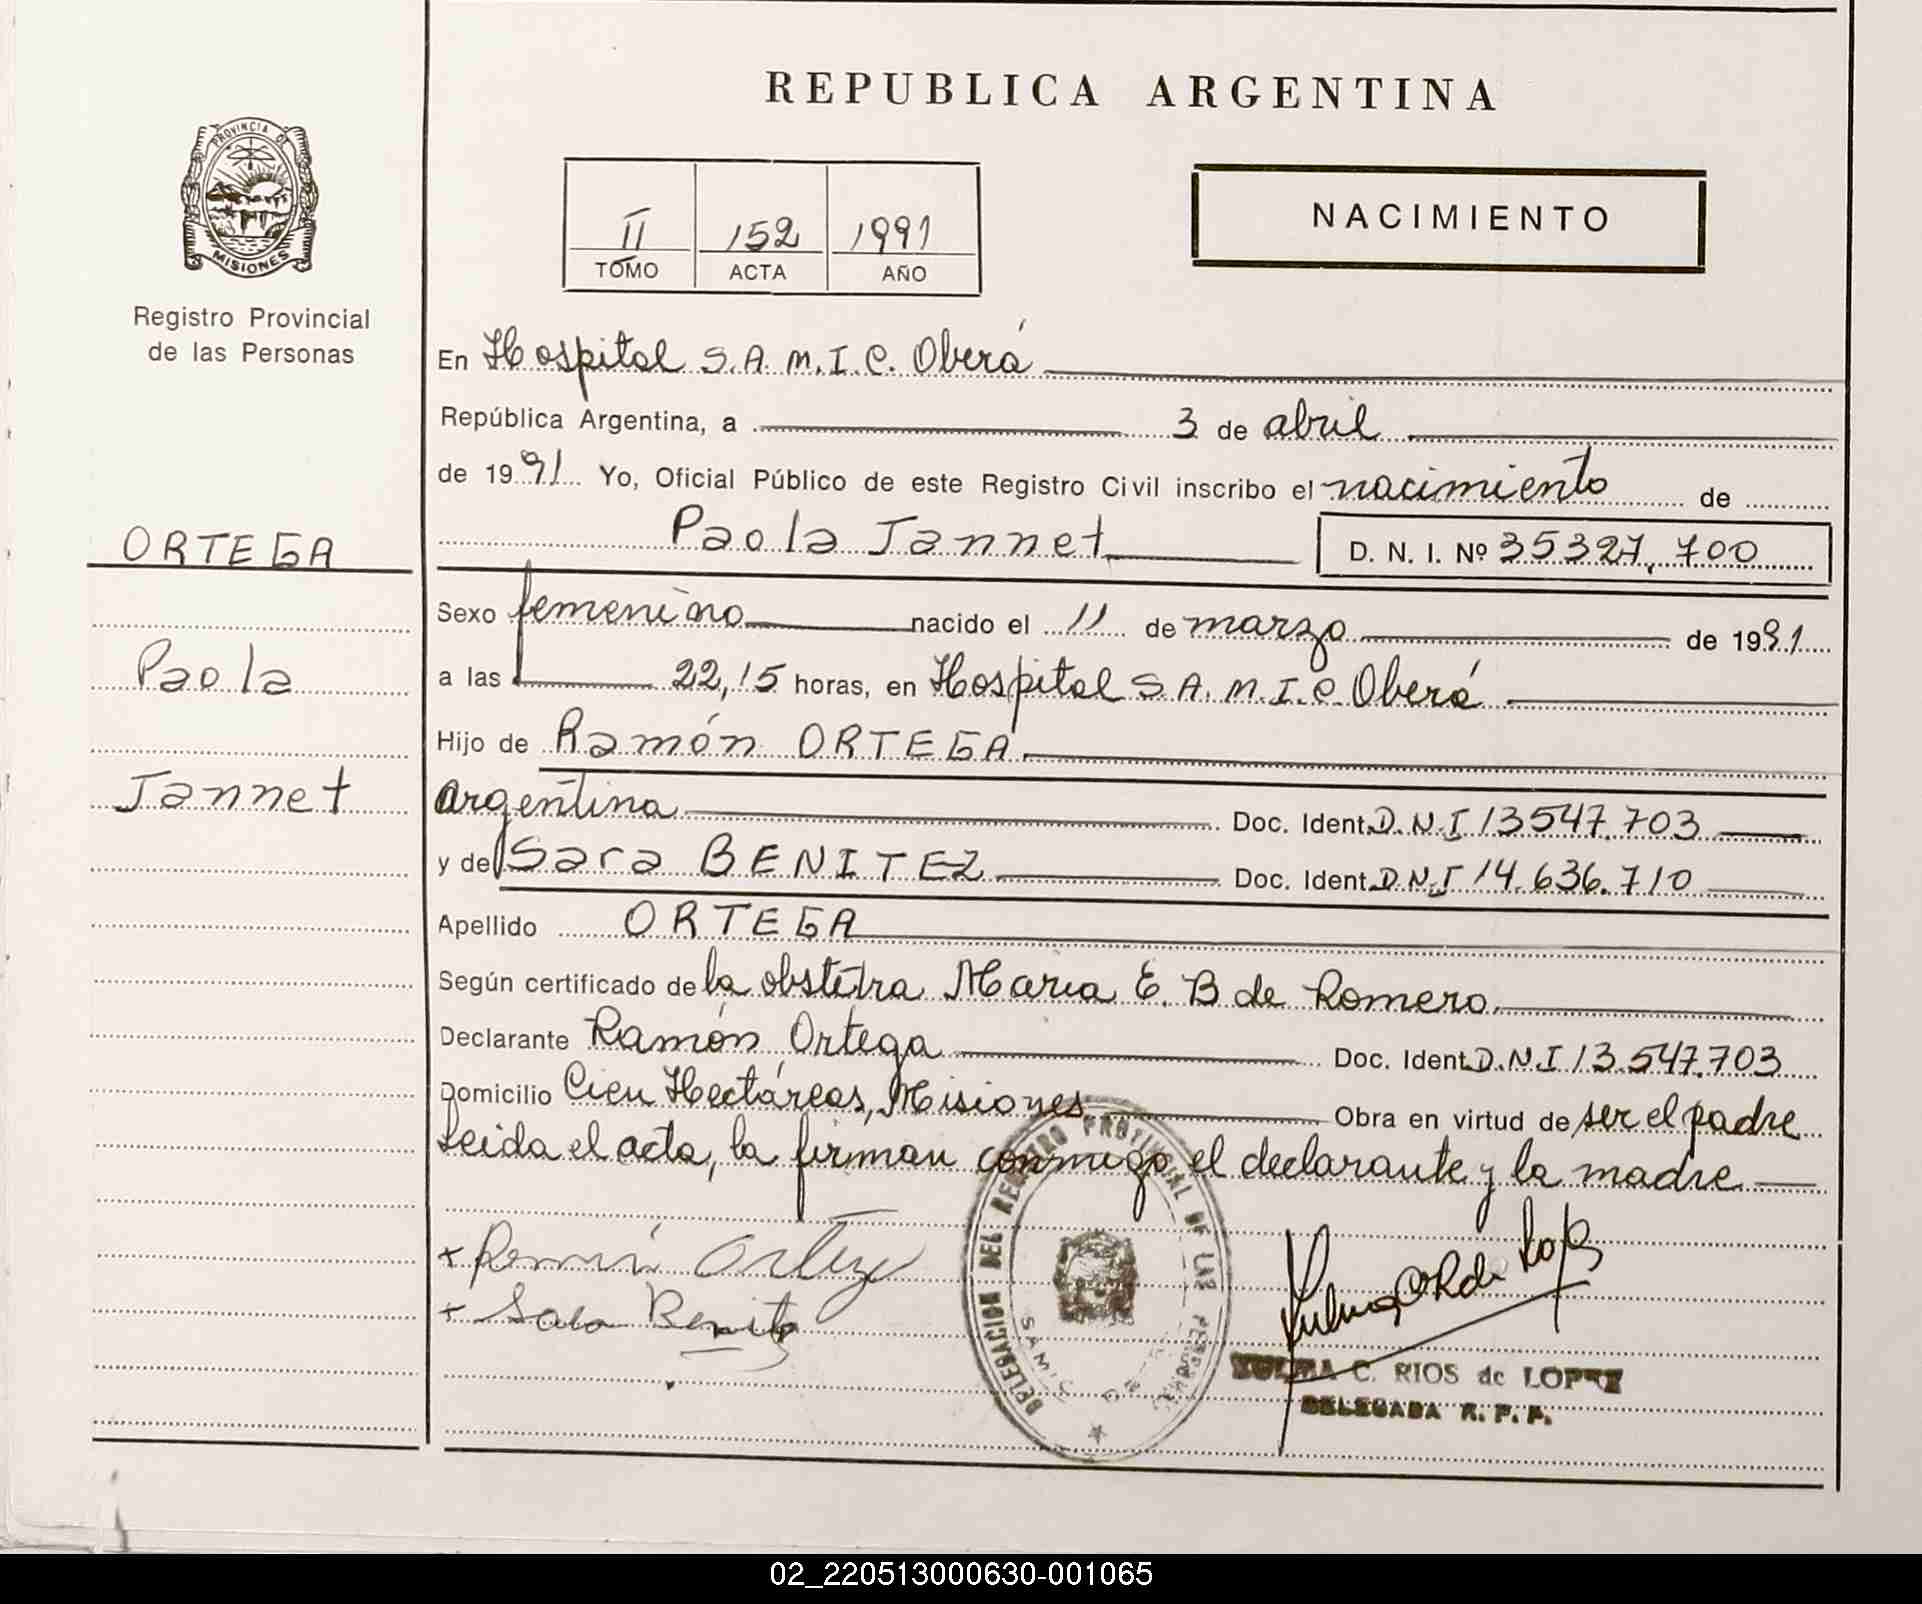 REPUBLICA ARGENTINA
PROVINCIA DE
MISIONES
Registro Provincial
de las Personas
II 152 1991
TOMO ACTA AÑO
NACIMIENTO
En Hospital S.A.M.I.C. Oberá
República Argentina, a 3 de abril
de 1991 Yo, Oficial Público de este Registro Civil inscribo el nacimiento de
Paola Jannet D. N. I. Nº 35327.700
ORTEGA
Paola
Jannet
Sexo femenino nacido el 11 de marzo de 1991
a las 22,15 horas, en Hospital S.A.M.I.C. Oberá
Hijo de Ramón ORTEGA
argentina Doc. Ident. D.N.I 13547.703
y de Sara BENITEZ Doc. Ident. D.N.I 14.636.710
Apellido ORTEGA
Según certificado de la obstetra Maria E. B de Romero
Declarante Ramón Ortega Doc. Ident. D.N.I 13.547.703
Domicilio Cien Hectáreas, Misiones Obra en virtud de ser el padre
Leida el acta, la firman conmigo el declarante y la madre
Ramón Ortega
Sara Benitez
DELEGACION DEL REGISTRO PROVINCIAL DE LAS PERSONAS
SAMIC
C. RIOS de LOPEZ
DELEGADA R. P. P.
02_220513000630-001065